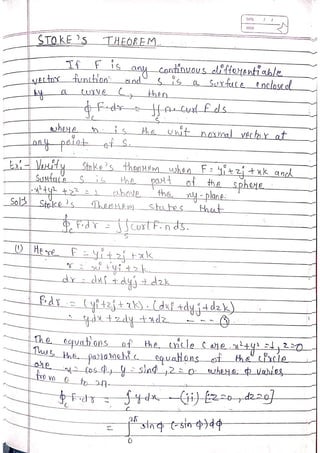 STOKE'S THEOREM
If F is any continuous differentiable
vector function and S is a surface enclosed
by a curve C, then
∮c F·dr = ∬s n·curl F ds
where n is the unit normal vector at
any point of S.
Ex:- Verify Stoke's theorem when F = yi + zj + xk and
Surface S is the part of the sphere
x²+y²+z² = 1 above the xy-plane.
Stoke's Theorem states that
∮c F·dr = ∬ curl F·n ds.
(i) Here F = yi + zj + xk
r = xi + yj + zk
dr = dxi + dyj + dzk
F·dr = (yi+zj+xk)·(dxi+dyj+dzk)
= ydx + zdy + xdz
The equations of the circle C are x²+y²=1, z=0
Thus the parametric equations of the circle
are x = cos φ, y = sin φ, z = 0 where φ varies
from 0 to 2π.
∮c F·ds = ∫ y dx - (ii) [∵ z=0, dz=0]
= ∫₀^2π sin φ (-sin φ) dφ